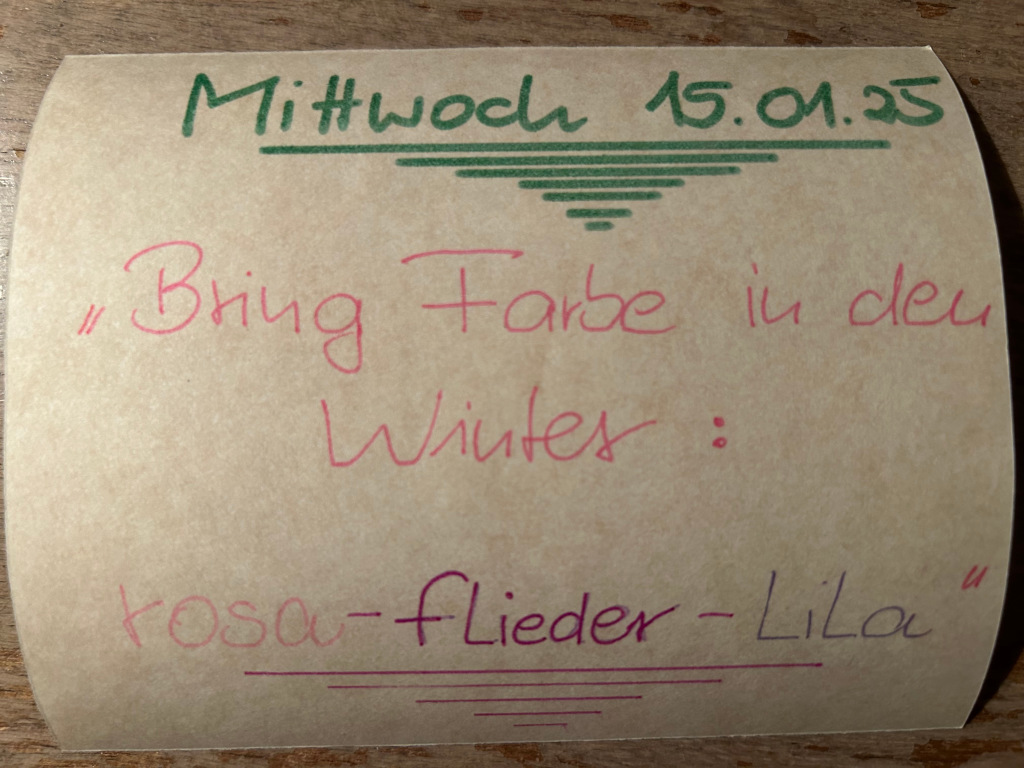 Mittwoch 15.01.25
„Bring Farbe in den
Winter :
rosa - flieder - Lila“